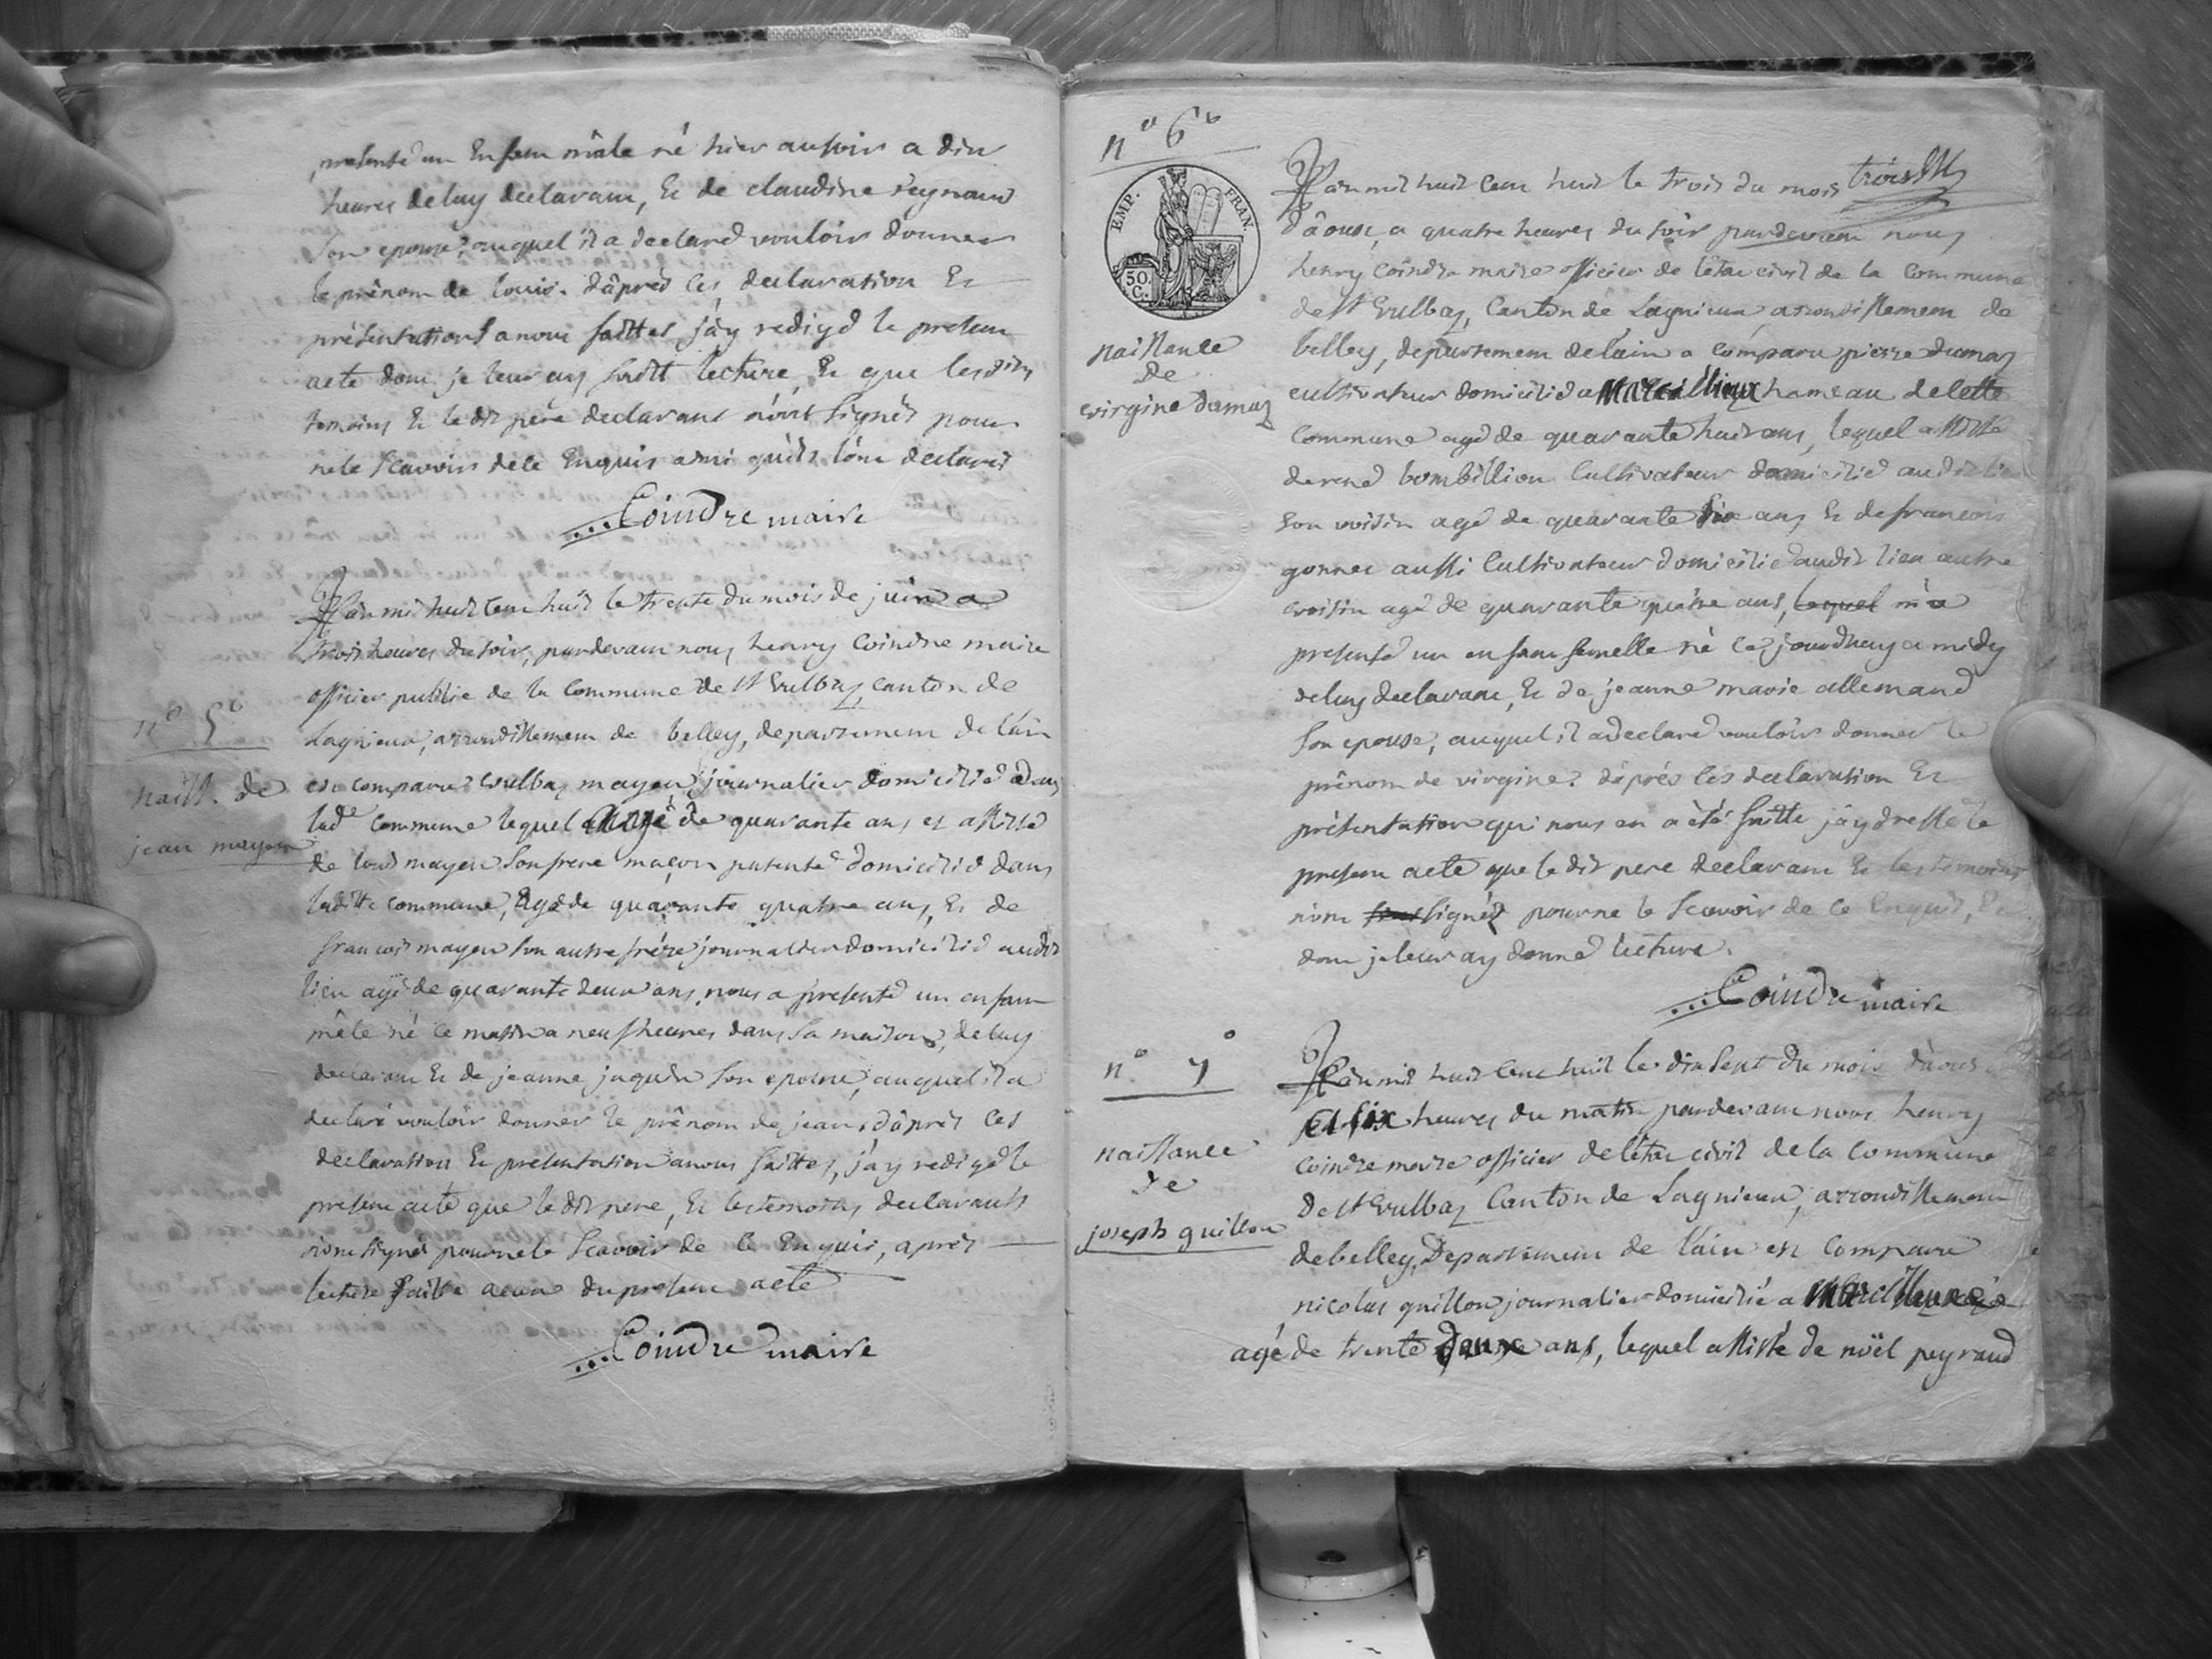 presenté un Enfan mâle né hier ausoir a dix
heures deluy declarant, Et de claudine reynaud
Son epouse, auquel il a declaré vouloir donner
le prénom de louis. d'âprès Ces declaration Et
présentations a nous faittes j'ây redigé le present
acte dont je leur ay faitt lecture, Et que lesdits
temoins Et le dit père declarant n'ont Signés pour
ne le Scavoir de ce Enquis ainsi qu'ils l'ont declarés
Coindre maire
L'an mil huit Cent huit le trente du mois de juin a
trois heures du soir, pardevant nous henry Coindre maire
officier public de la Commune de St Vulbaz canton de
Lagnieux, arrondissement de belley, departement de l'ain
n° 5°
naiss. de
jean mayen
est comparu vulbaz mayen journalier domicilié dans
lade commune lequel agé de quarante ans et assisté
de louis mayen Son frere maçon patenté domicilié dans
laditte commune, Agé de quarante quatre ans, Et de
francois mayen Son autre frére journalier domicilié audit
lieu agé de quarante deux ans, nous a presenté un enfant
mâle né ce matin a neuf heures dans Sa maison, de luy
declarant Et de jeanne jaquin Son epouse, auquel il a
declaré vouloir donner le prênom de jean, d'âprès Ces
declaration Et presentation a nous faittes, j'ay redigé le
present acte que le dit pere, Et les temoins declarants
n'ont signés pour ne le Scavoir de ce Enquis, après
lecture faitte a eux du present acte
Coindre maire
n° 6°
EMP. FRAN.
50. C.
naissance
de
virgine dumaz
L'an mil huit Cent huit le trois du mois trois
d'âoust, a quatre heures du soir pardevant nous
henry Coindre maire officier de l'êtat civil de la Commune
de St Vulbaz, Canton de Lagnieux, arrondissement de
belley, departement de l'ain a Comparu pierre dumaz
cultivateur domicilié a Marcillieux hameau de cette
Commune agé de quarante huit ans, lequel assisté
de rené bombillion Cultivateur domicilié audit lieu
Son voisin agé de quarante Six ans, Et de francois
gonnet aussi Cultivateur domicilié audit lieu autre
voisin agé de quarante quatre ans, lequel m'a
presenté un enfant femelle né ce jourdhuy a midy
de luy declarant, Et de jeanne marie allemand
Son epouse, auquel il a declaré vouloir donner le
prênom de virgine, d'âprés Ces declaration Et
présentation qui nous en a été faitte j'ây dressé le
present acte que le dit pere declarant Et les temoins
n'ont signés pour ne le Scavoir de ce Enquis,
dont je leur ay donné lecture.
Coindre maire
n° 7°
naissance
de
joseph guillon
L'an mil huit Cent huit le dix Sept du mois d'aoust
et six heures du matin pardevant nous henry
Coindre maire officier de l'êtat civil de la Commune
de St Vulbaz Canton de Lagnieux, arrondissement
de belley, Departement de l'ain est Comparu
nicolas guillon journalier domicilié a Marcillieux
agé de trente deux ans, lequel assisté de noël peyraud